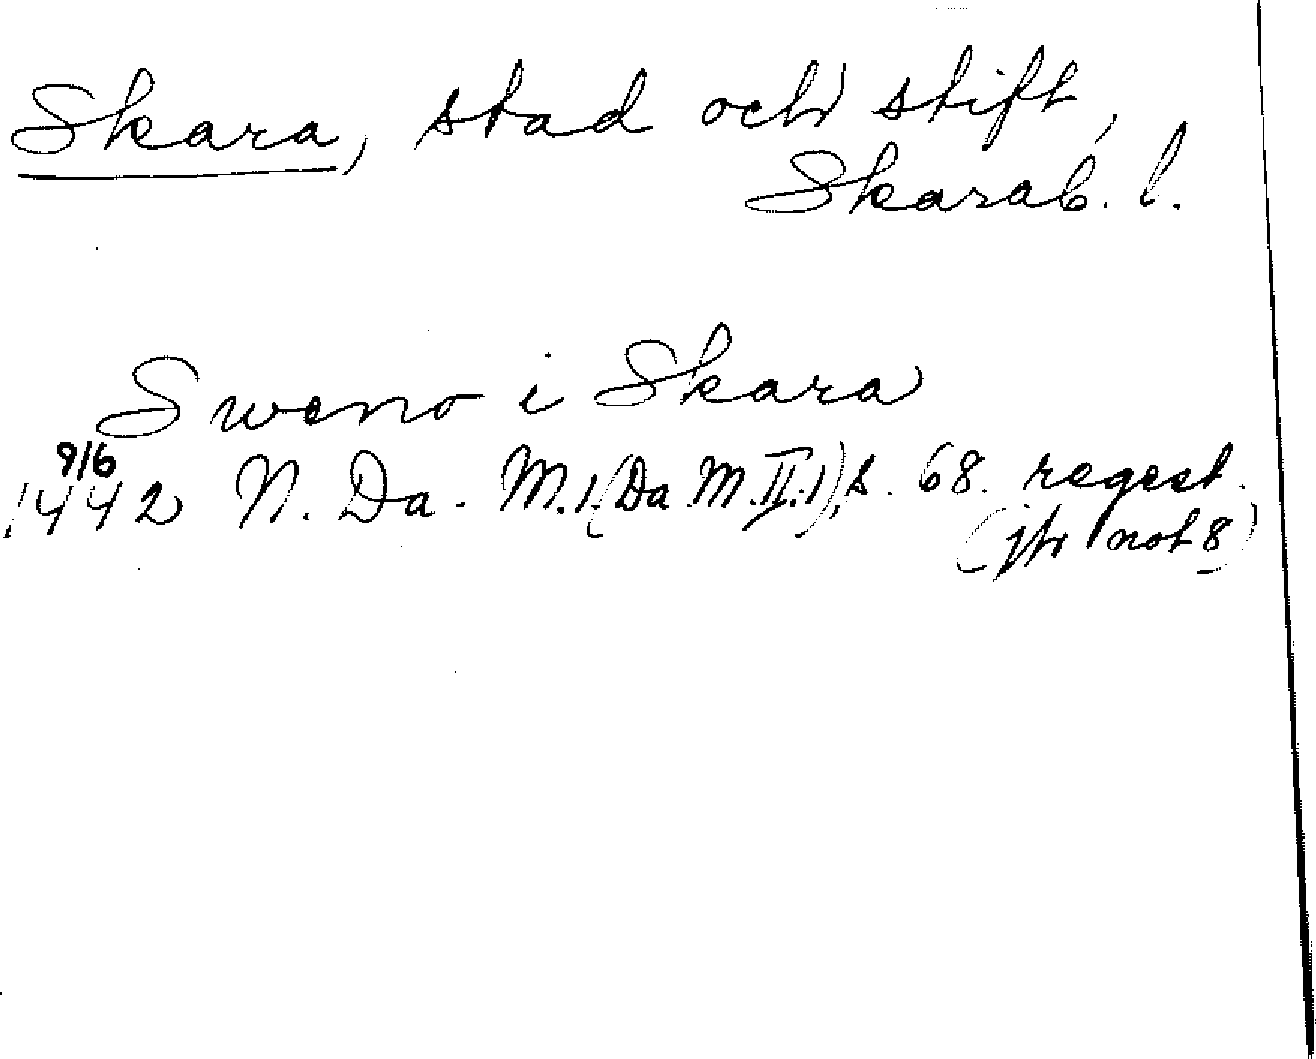 Skara, stad och stift,
Skarab. l.
Sweno i Skara
9/6
1442 N. Da. M. 1 (Da M. II:1), s. 68. regest.
(jfr not 8)